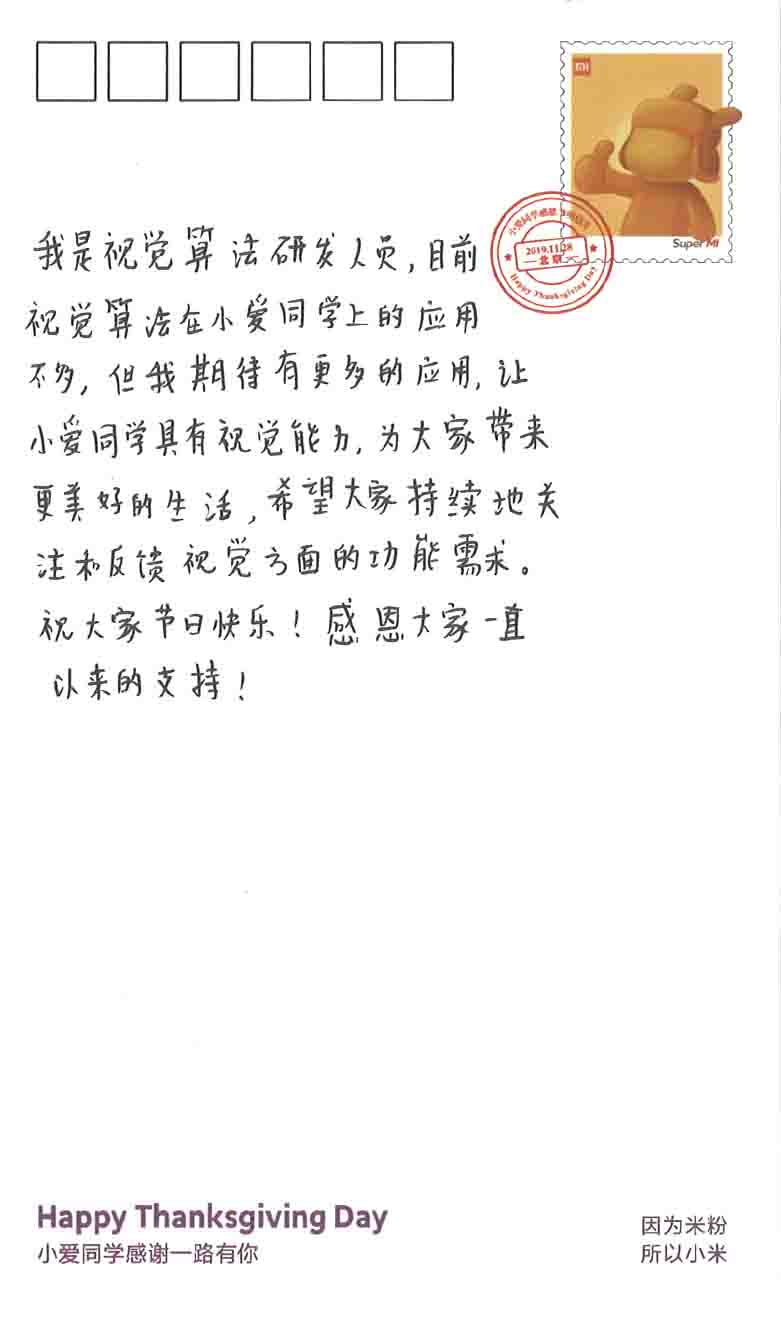 MI
Super MI
小爱同学感恩
2019.11.28
北京
Happy Thanksgiving Day
我是视觉算法研发人员,目前
视觉算法在小爱同学上的应用
不多,但我期待有更多的应用,让
小爱同学具有视觉能力,为大家带来
更美好的生活,希望大家持续地关
注和反馈视觉方面的功能需求。
祝大家节日快乐!感恩大家一直
以来的支持!
Happy Thanksgiving Day
小爱同学感谢一路有你
因为米粉
所以小米